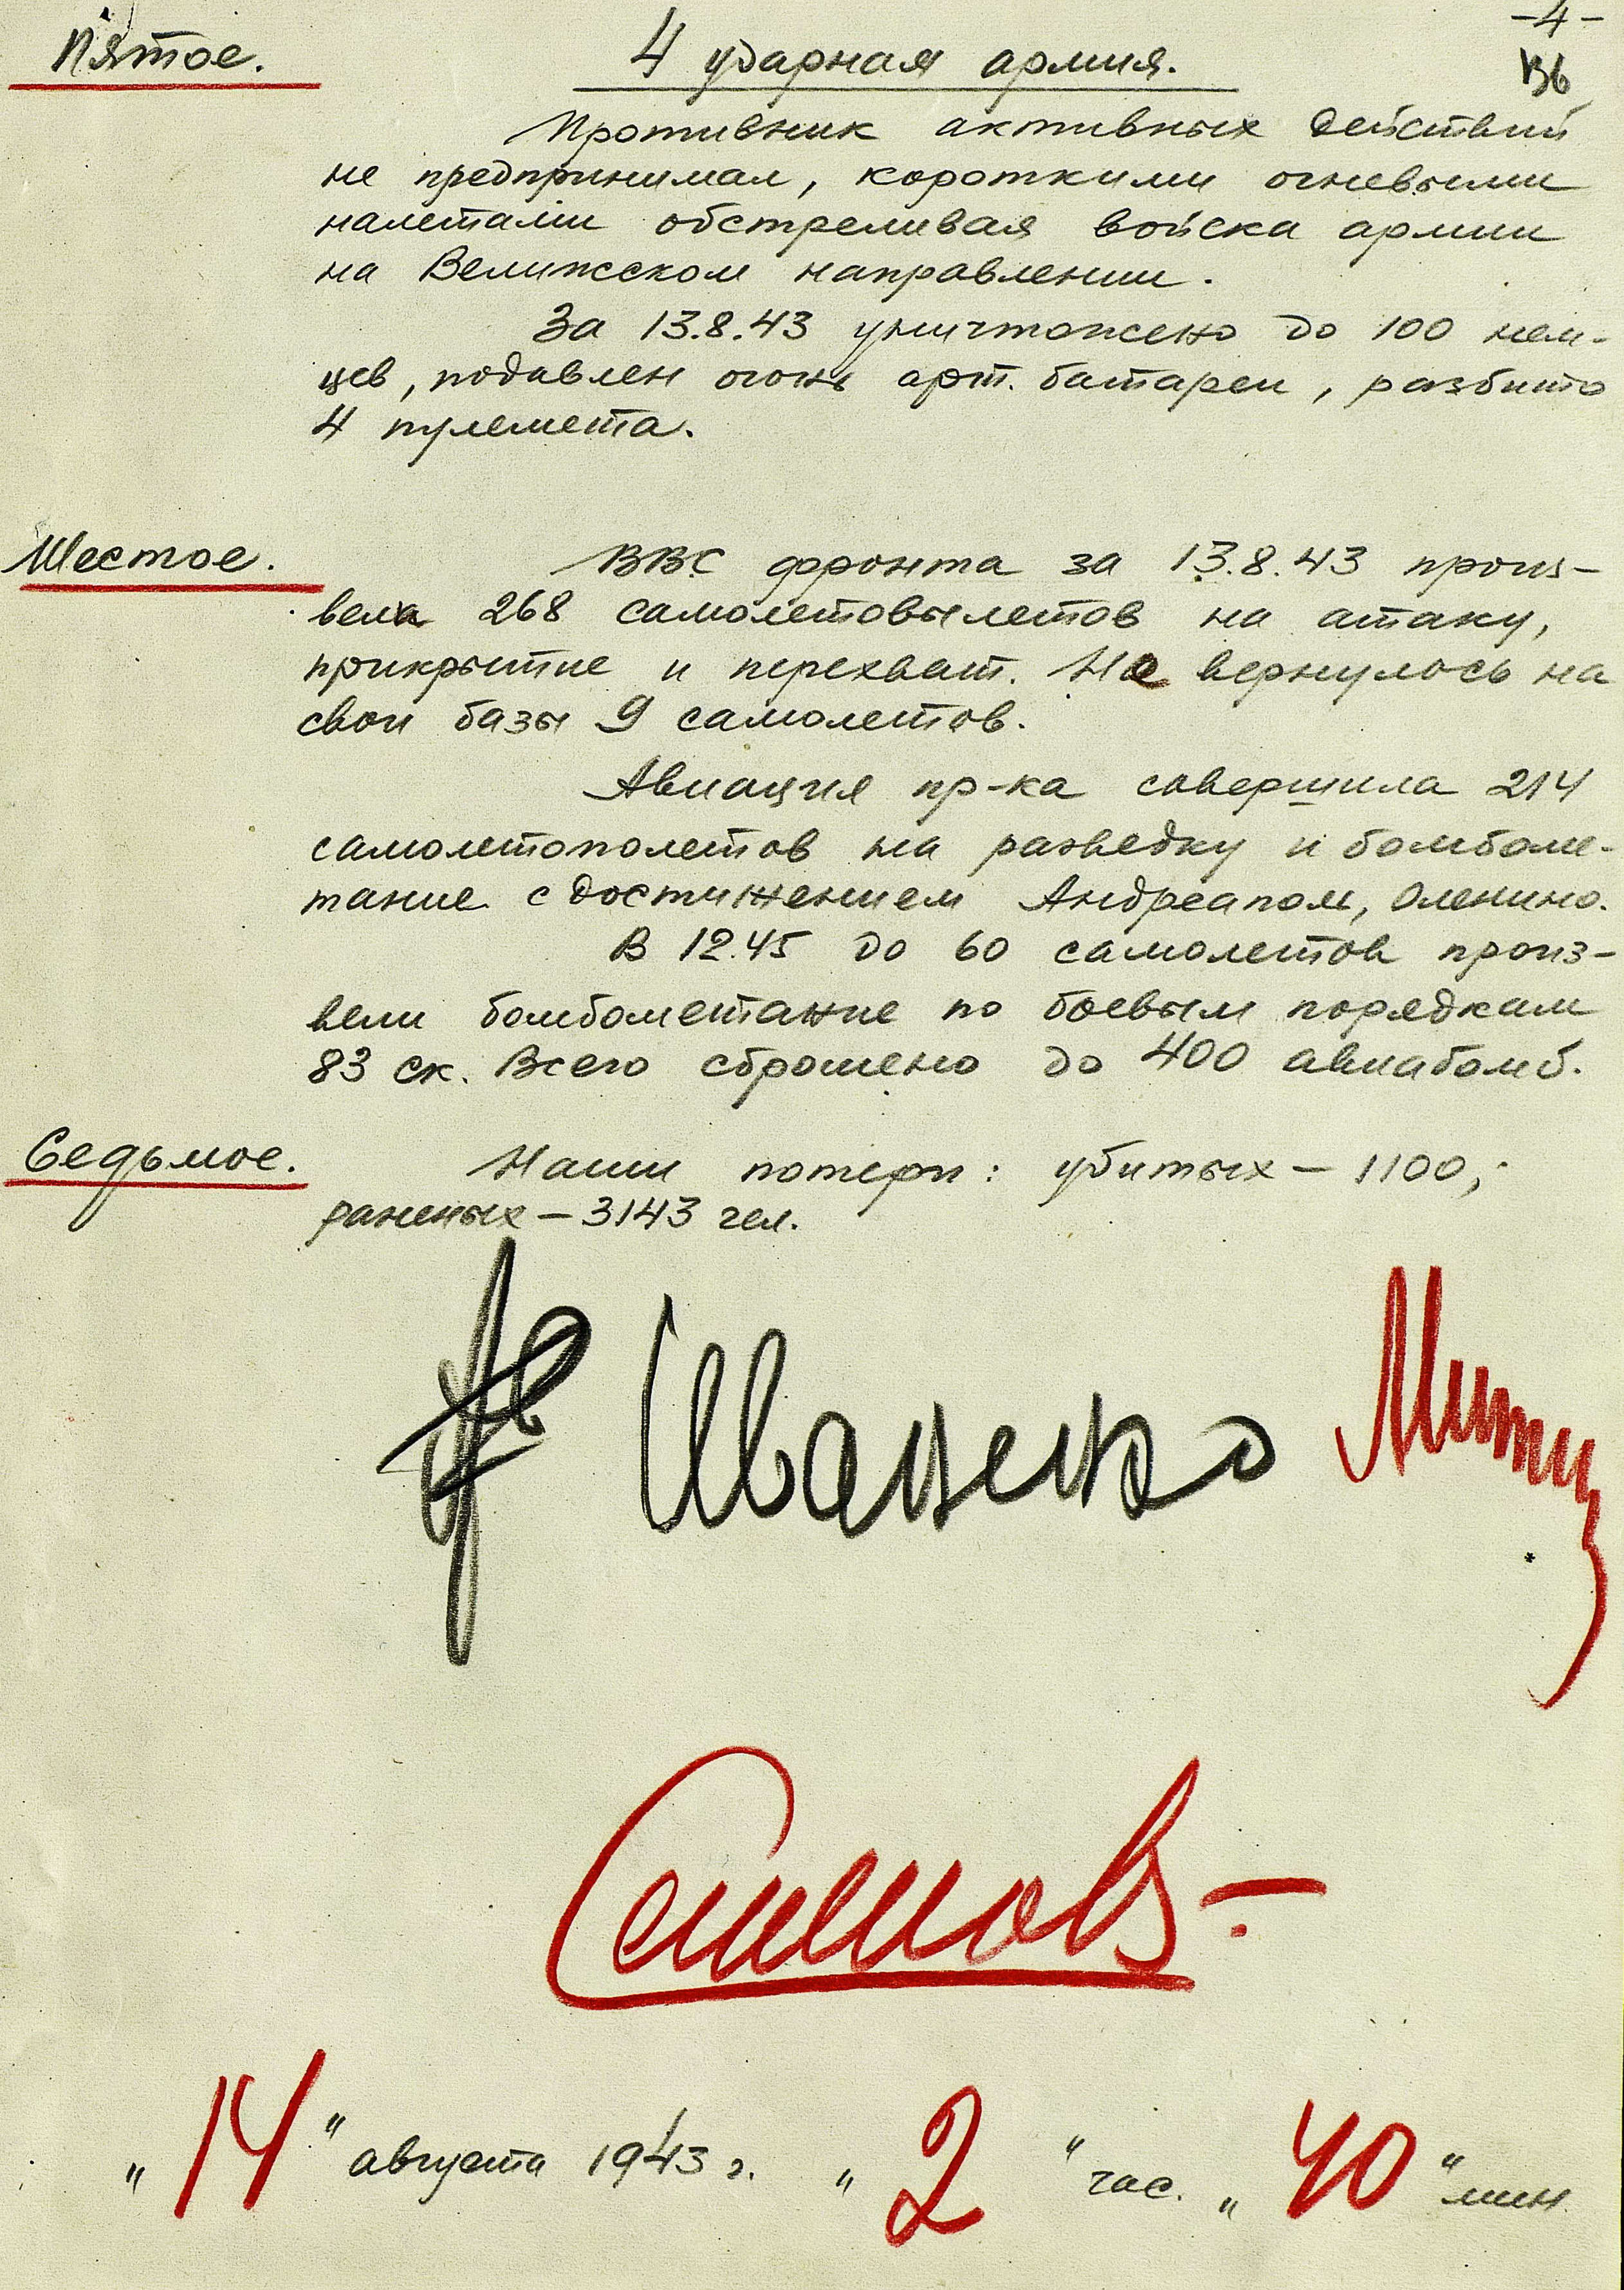 -4-
Пятое.
4 ударная армия.
136
Противник активных действий
не предпринимал, короткими огневыми
налетами обстреливая войска армии
на Велижском направлении.
За 13.8.43 уничтожено до 100 нем-
цев, подавлен огонь арт. батареи, разбито
4 пулемета.
Шестое.
ВВС фронта за 13.8.43 произ-
вели 268 самолетовылетов на атаку,
прикрытие и перехват. Не вернулось на
свои базы 9 самолетов.
Авиация пр-ка совершила 214
самолетополетов на разведку и бомбоме-
тание с достижением Андреаполь, Оленино.
В 12.45 до 60 самолетов произ-
вели бомбометание по боевым порядкам
83 ск. Всего сброшено до 400 авиабомб.
Седьмое.
Наши потери: убитых – 1100;
раненых – 3143 чел.
Иваненко
Семенов-
"14" августа 1943 г. "2" час. "40" мин.